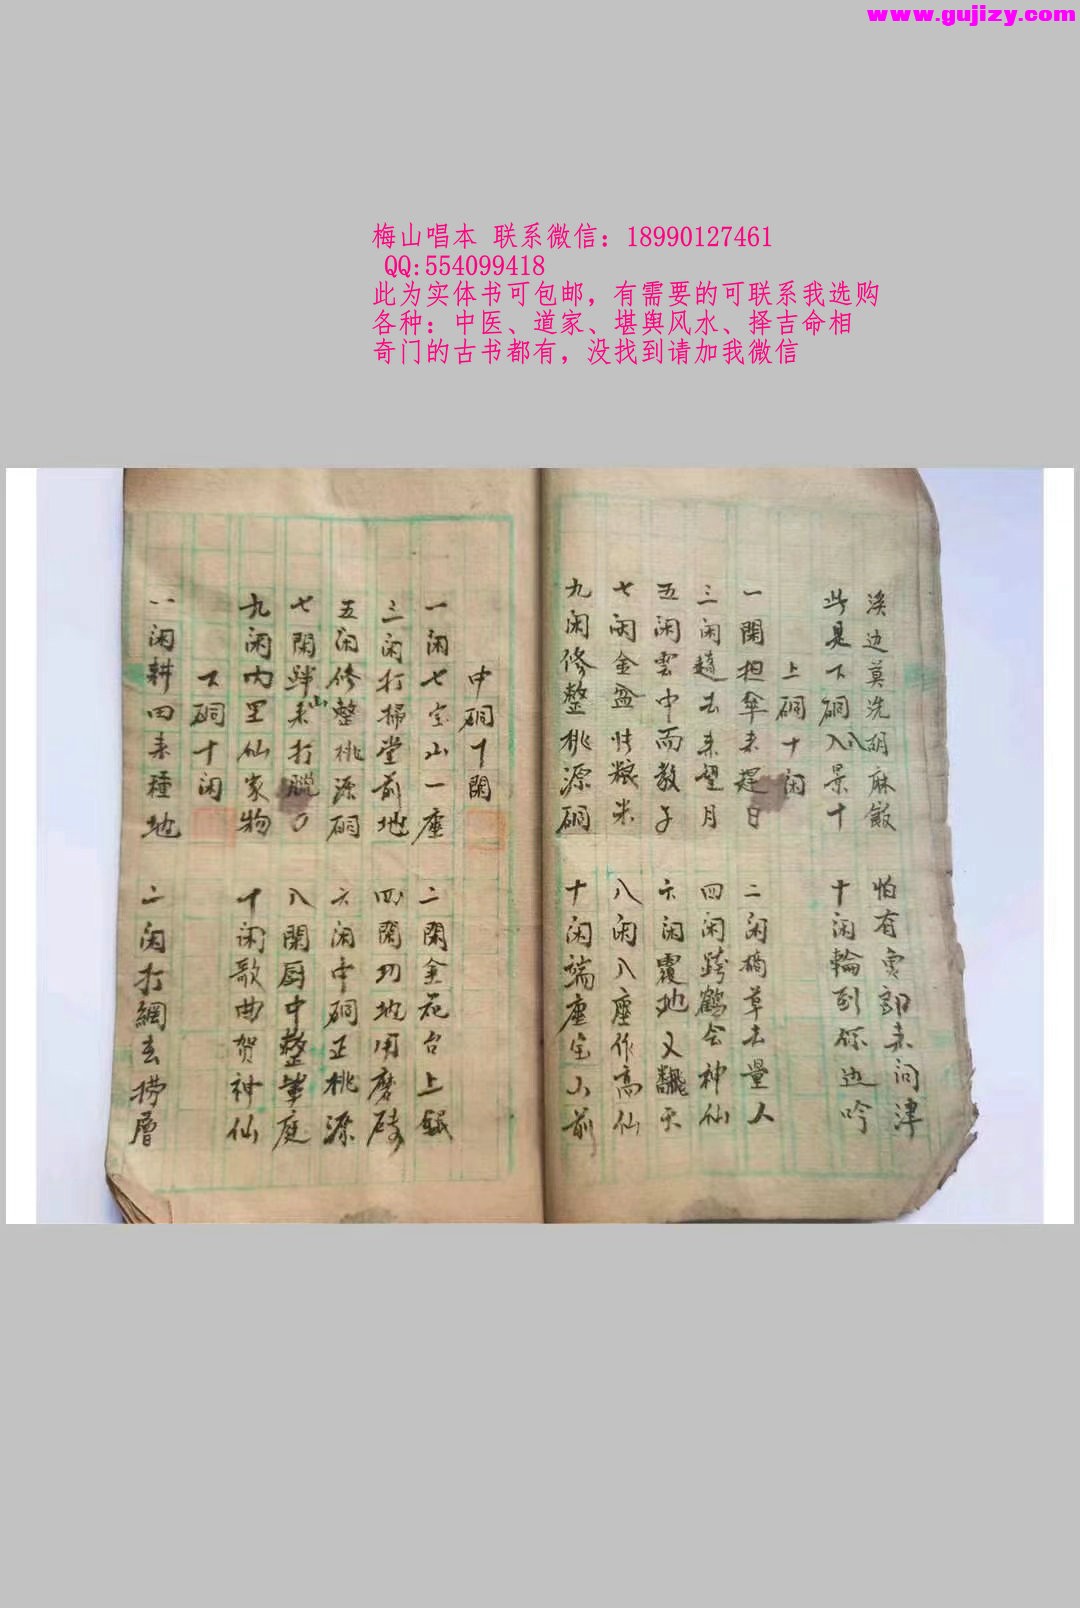 www.gujizy.com
梅山唱本 联系微信：18990127461
QQ:554099418
此为实体书可包邮，有需要的可联系我选购
各种：中医、道家、堪舆风水、择吉命相
奇门的古书都有，没找到请加我微信
溪边莫洗胡麻飯 怕有 郎来问津
此是下硐入八景十 十闲輪到你边吟
上硐十闲
一閑担傘来遅日 二闲橋草去量人
三闲 去来望月 四闲跨鶴会神仙
五闲雲中而教子 六闲 地又飄天
七闲金盆 粮米 八闲八座作高仙
九闲修整桃源硐 十闲端座宝山前
中硐十閑
一闲七宝山一座 二閑金花台上
三闲打掃堂前地 四閑功地用磨磚
五闲修整桃源硐 六闲中硐正桃源
七閑 来山打 八閑厨中整 庭
九闲内里仙家物 十闲歌曲贺神仙
下硐十闲
一闲耕田来種地 二闲打網去撈層